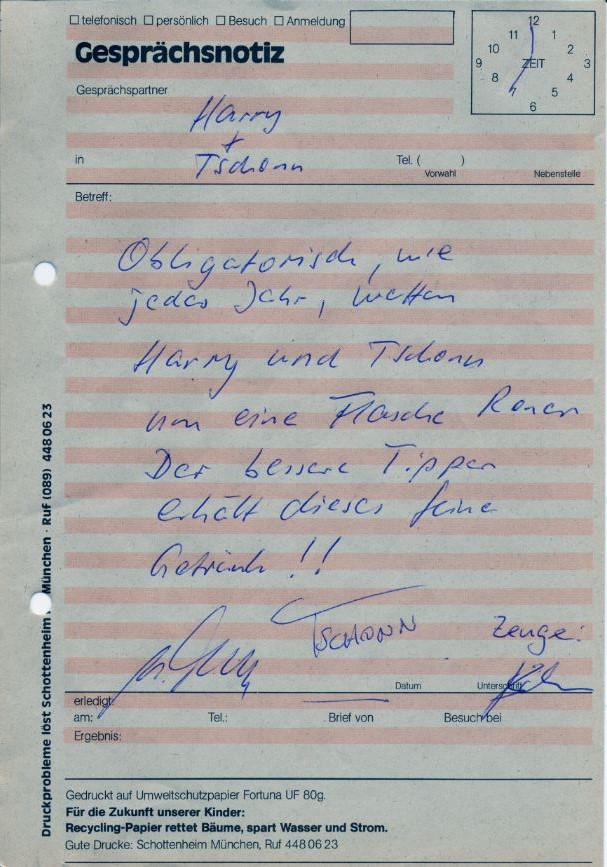 ☐ telefonisch ☐ persönlich ☐ Besuch ☐ Anmeldung
Gesprächsnotiz
12
11 1
10 2
9 ZEIT 3
8 4
7 5
6
Gesprächspartner
Harry
+
Tschonn
in Tel. ( )
Vorwahl Nebenstelle
Betreff:
Obligatorisch, wie
jedes Jahr, wetten
Harry und Tschonn
um eine Flasche
Der bessere Tipper
erhält dieses feine
Getränk!!
TSCHONN Zeuge:
Datum Unterschrift
erledigt:
am: Tel.: Brief von Besuch bei
Ergebnis:
Gedruckt auf Umweltschutzpapier Fortuna UF 80g.
Für die Zukunft unserer Kinder:
Recycling-Papier rettet Bäume, spart Wasser und Strom.
Gute Drucke: Schottenheim München, Ruf 448 06 23
Druckprobleme löst Schottenheim München · Ruf (089) 448 06 23